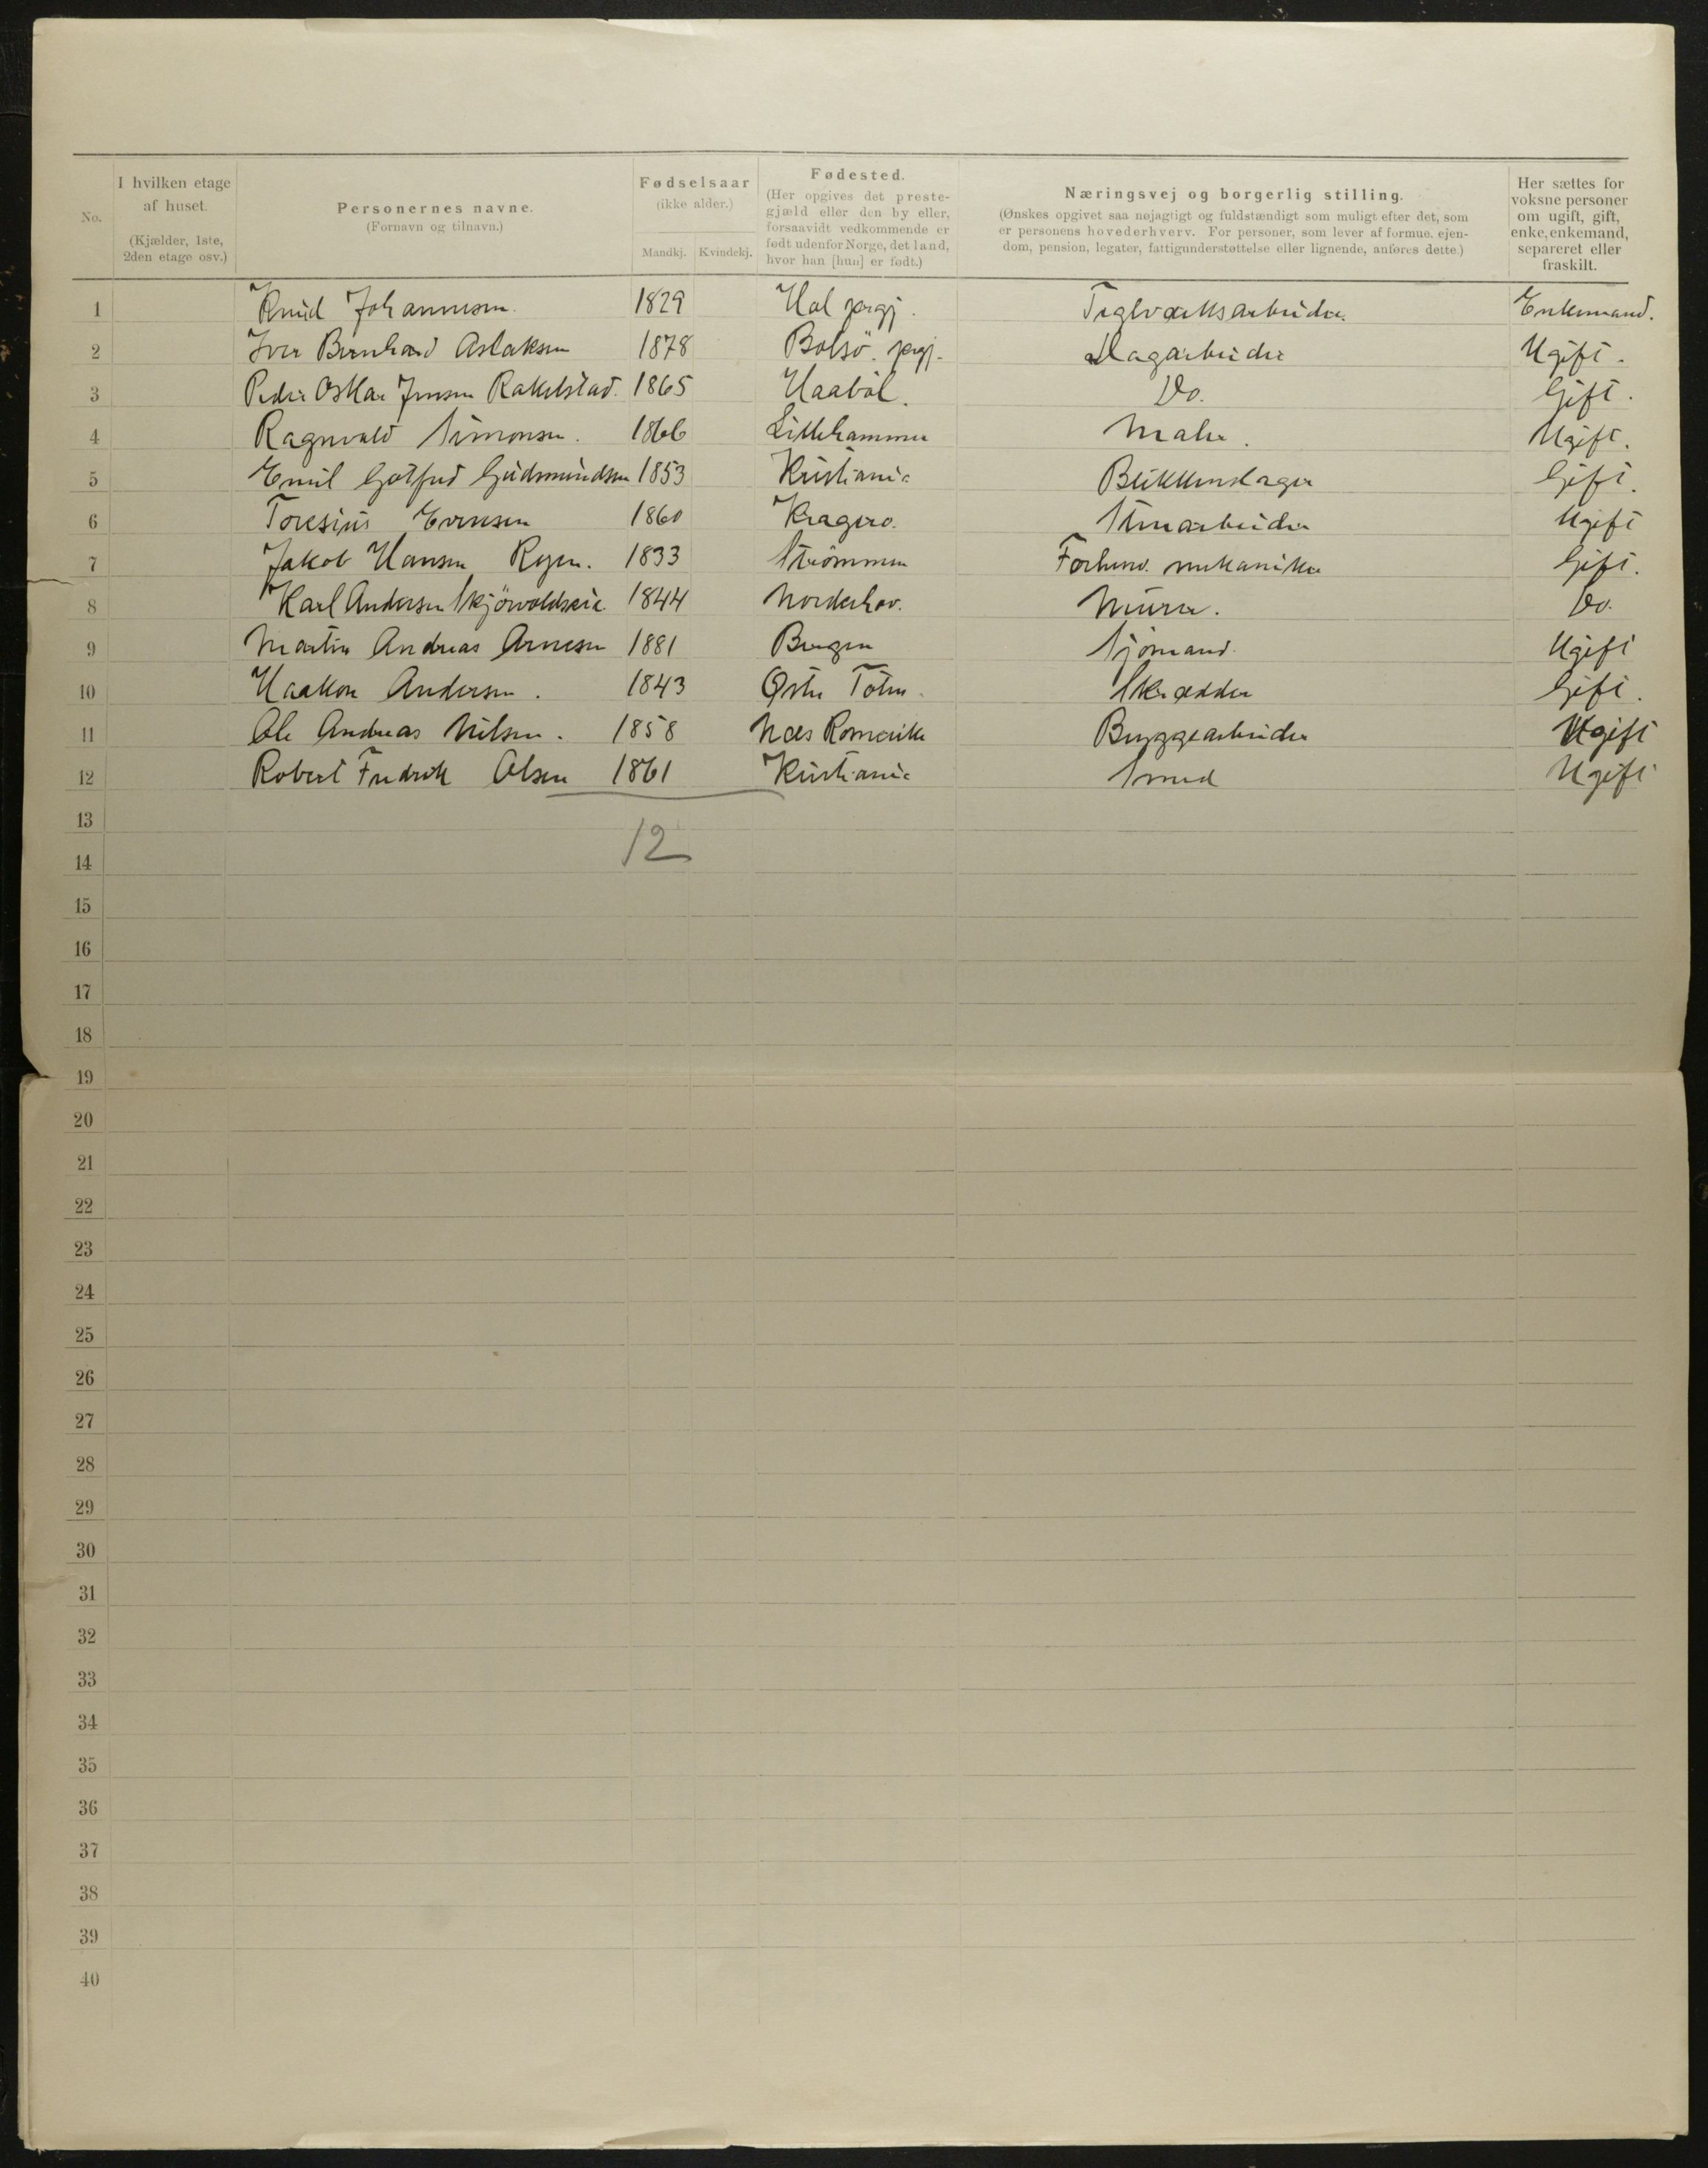 No.
I hvilken etage af huset. (Kjælder, 1ste, 2den etage osv.)
Personernes navne. (Fornavn og tilnavn.)
Fødselsaar (ikke alder.)
Mandkj. Kvindekj.
Fødested. (Her opgives det prestegjæld eller den by eller, forsaavidt vedkommende er født udenfor Norge, det land, hvor han [hun] er født.)
Næringsvej og borgerlig stilling. (Ønskes opgivet saa nøjagtigt og fuldstændigt som muligt efter det, som er personens hovederhverv. For personer, som lever af formue, ejendom, pension, legater, fattigunderstøttelse eller lignende, anføres dette.)
Her sættes for voksne personer om ugift, gift, enke, enkemand, separeret eller fraskilt.
1 Knud Johannesen. 1829 Hol prgj. Teglværksarbeider. Enkemand.
2 Iver Bernhard Aslaksen 1878 Bolsö. prgj. Dagarbeider Ugift.
3 Peder Oskar Jensen Rakelstad. 1865 Haaböl. Do. Gift.
4 Ragnvald Simonsen. 1866 Lillehammer Maler. Ugift.
5 Emil Gotfred Gudmundsen 1853 Kristiania Blikkenslager Gift.
6 Toresius Evensen 1860 Kragerø. Stenarbeider Ugift
7 Jakob Hansen Ryen. 1833 Strömmen Forhenv. mekaniker Gift.
8 Karl Andersen 1844 Norderhov. Murer. Do.
9 Martin Andreas Arnesen 1881 Bergen Sjömand. Ugift
10 Haakon Andersen. 1843 Østre Toten. Skrædder Gift.
11 Ole Andreas Nilsen. 1858 Næs Romerike Bryggearbeider Ugift
12 Robert Fredrik Olsen 1861 Kristiania Smed Ugift
13
12
14
15
16
17
18
19
20
21
22
23
24
25
26
27
28
29
30
31
32
33
34
35
36
37
38
39
40